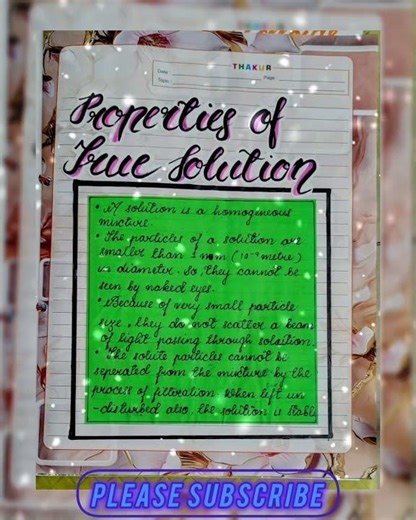 THAKUR
Date
Topic
Page
Properties of
True Solution
• A solution is a homogenious
mixture.
• The particles of a solution are
smaller than 1 nm (10⁻⁹ metre)
in diameter. So, they cannot be
seen by naked eyes.
• Because of very small particle
size, they do not scatter a beam
of light passing through solution.
• The solute particles cannot be
seperated from the mixture by the
process of filteration. When left un
-disturbed also, the solution is stable
PLEASE SUBSCRIBE